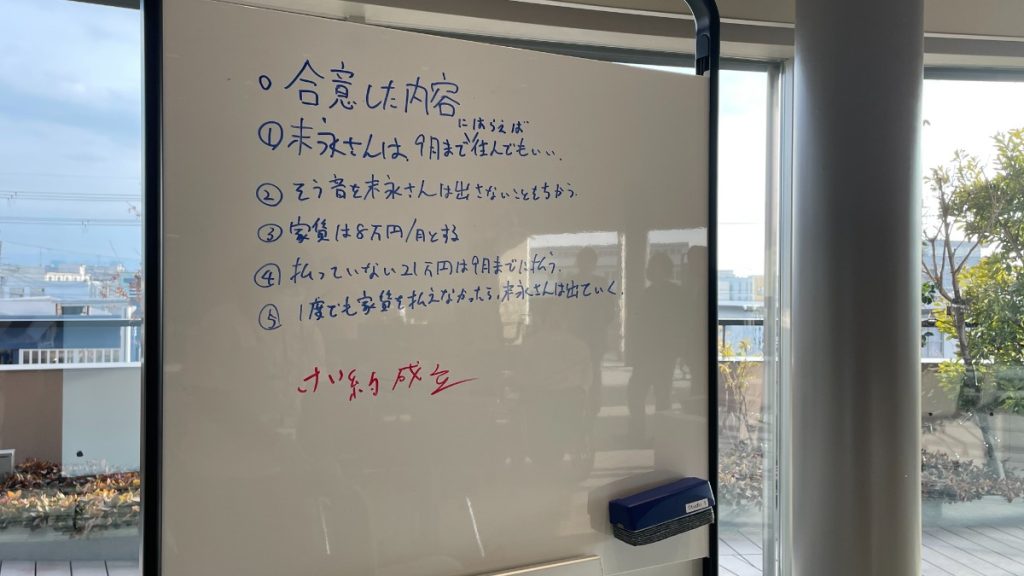 ○ 合意した内容
にはらえば
① 末永さんは、9月まで住んでもいい、
② そう音を末永さんは出さないことをちかう
③ 家賃は8万円/月とする
④ 払っていない21万円は9月までに払う、
⑤ 1度でも家賃を払えなかったら、末永さんは出ていく、
けい約成立